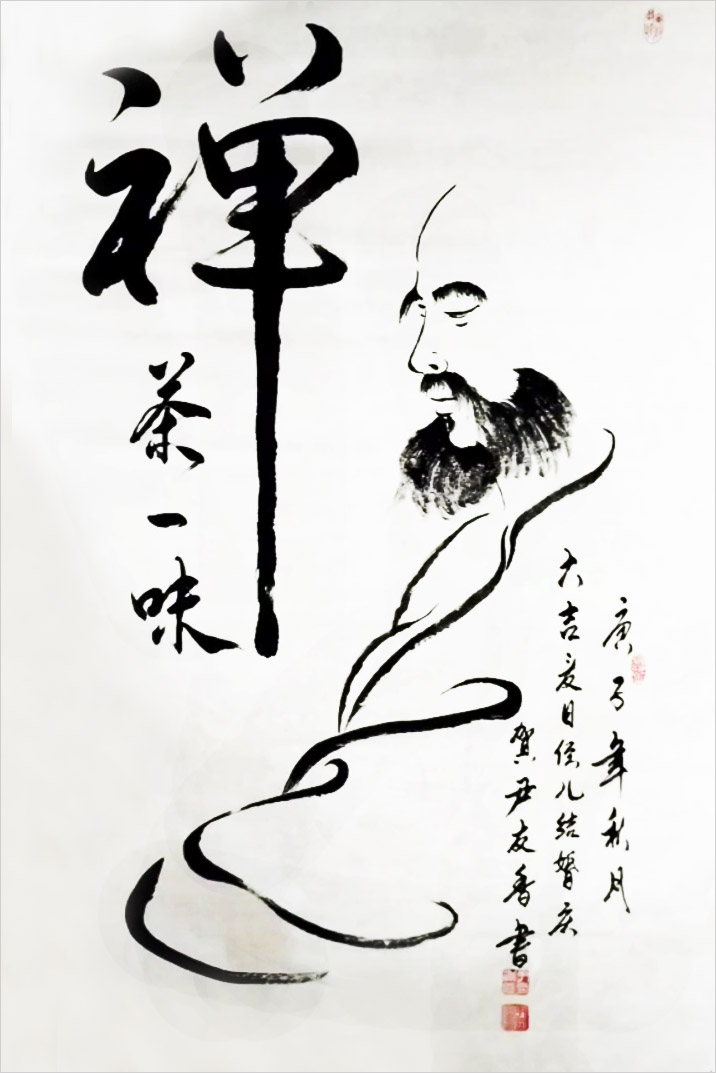 禅
茶一味
庚子年秋月
大吉日侄儿結婚庆
賀尹友香書